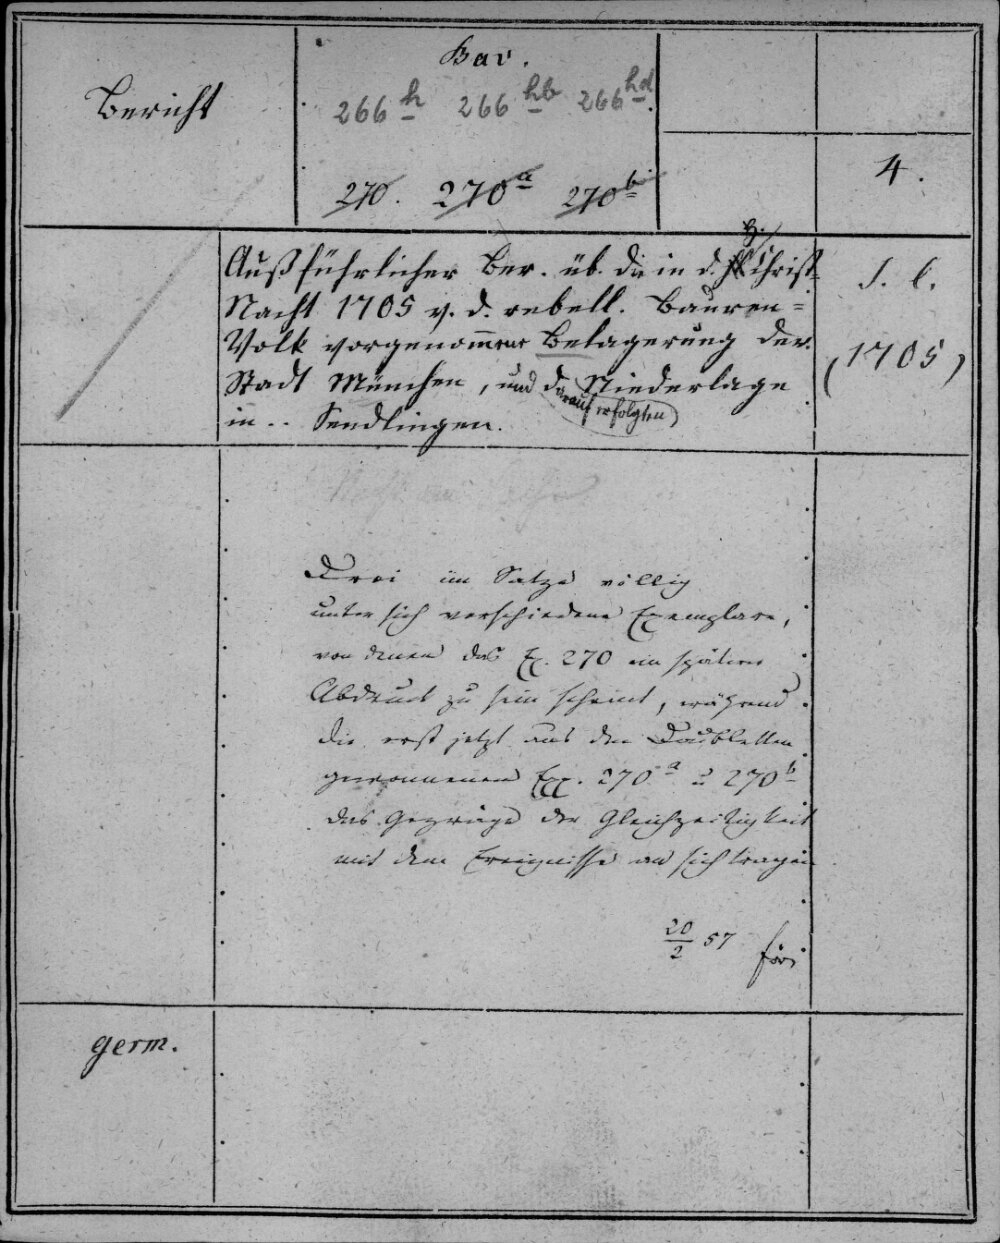 Bericht
Bav.
266 h 266 hb 266 hd
270. 270 a 270 b
4.
Außführlicher Ber. üb. die in d. H. Christ-
Nacht 1705 v. d. rebell. Bauren-
Volk vorgenommene Belagerung der
Stadt München, und darauf erfolgten Niederlage
in .. Sendlingen.
s. l.
(1705)
Drei im Satze völlig
unter sich verschiedene Exemplare,
von denen das Ex. 270 ein späterer
Abdruck zu sein scheint, während
die erst jetzt aus den Doubletten
gewonnenen Exx. 270 a u 270 b
das Gepräge der Gleichzeitigkeit
mit dem Ereignisse an sich tragen
20/2 57
germ.